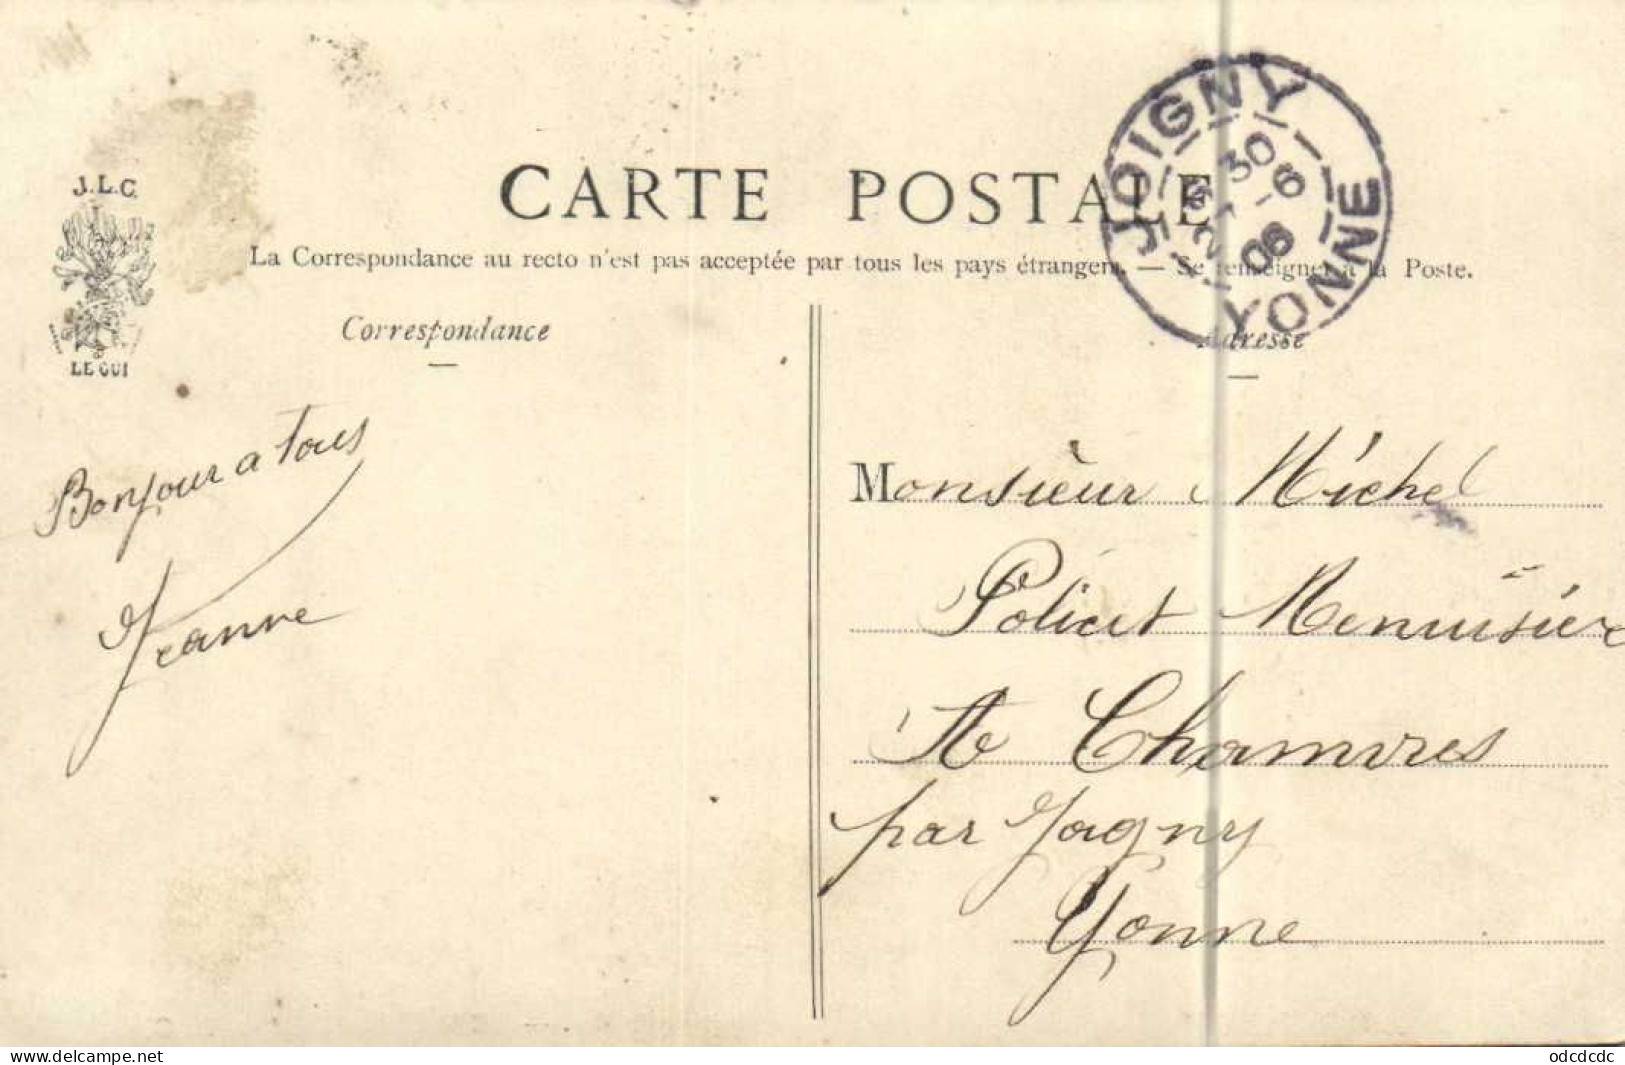 J.L.C.
LE GUI
CARTE POSTALE
La Correspondance au recto n'est pas acceptée par tous les pays étrangers. — Se renseigner à la Poste.
Correspondance
Adresse
JOIGNY
30
2 -6
06
YONNE
Bonjour a tous
Jeanne
Monsièur Michel
Policet Menuisièr
A Chamvres
par Jogny
Yonne
delcampe.net
odcdcdc